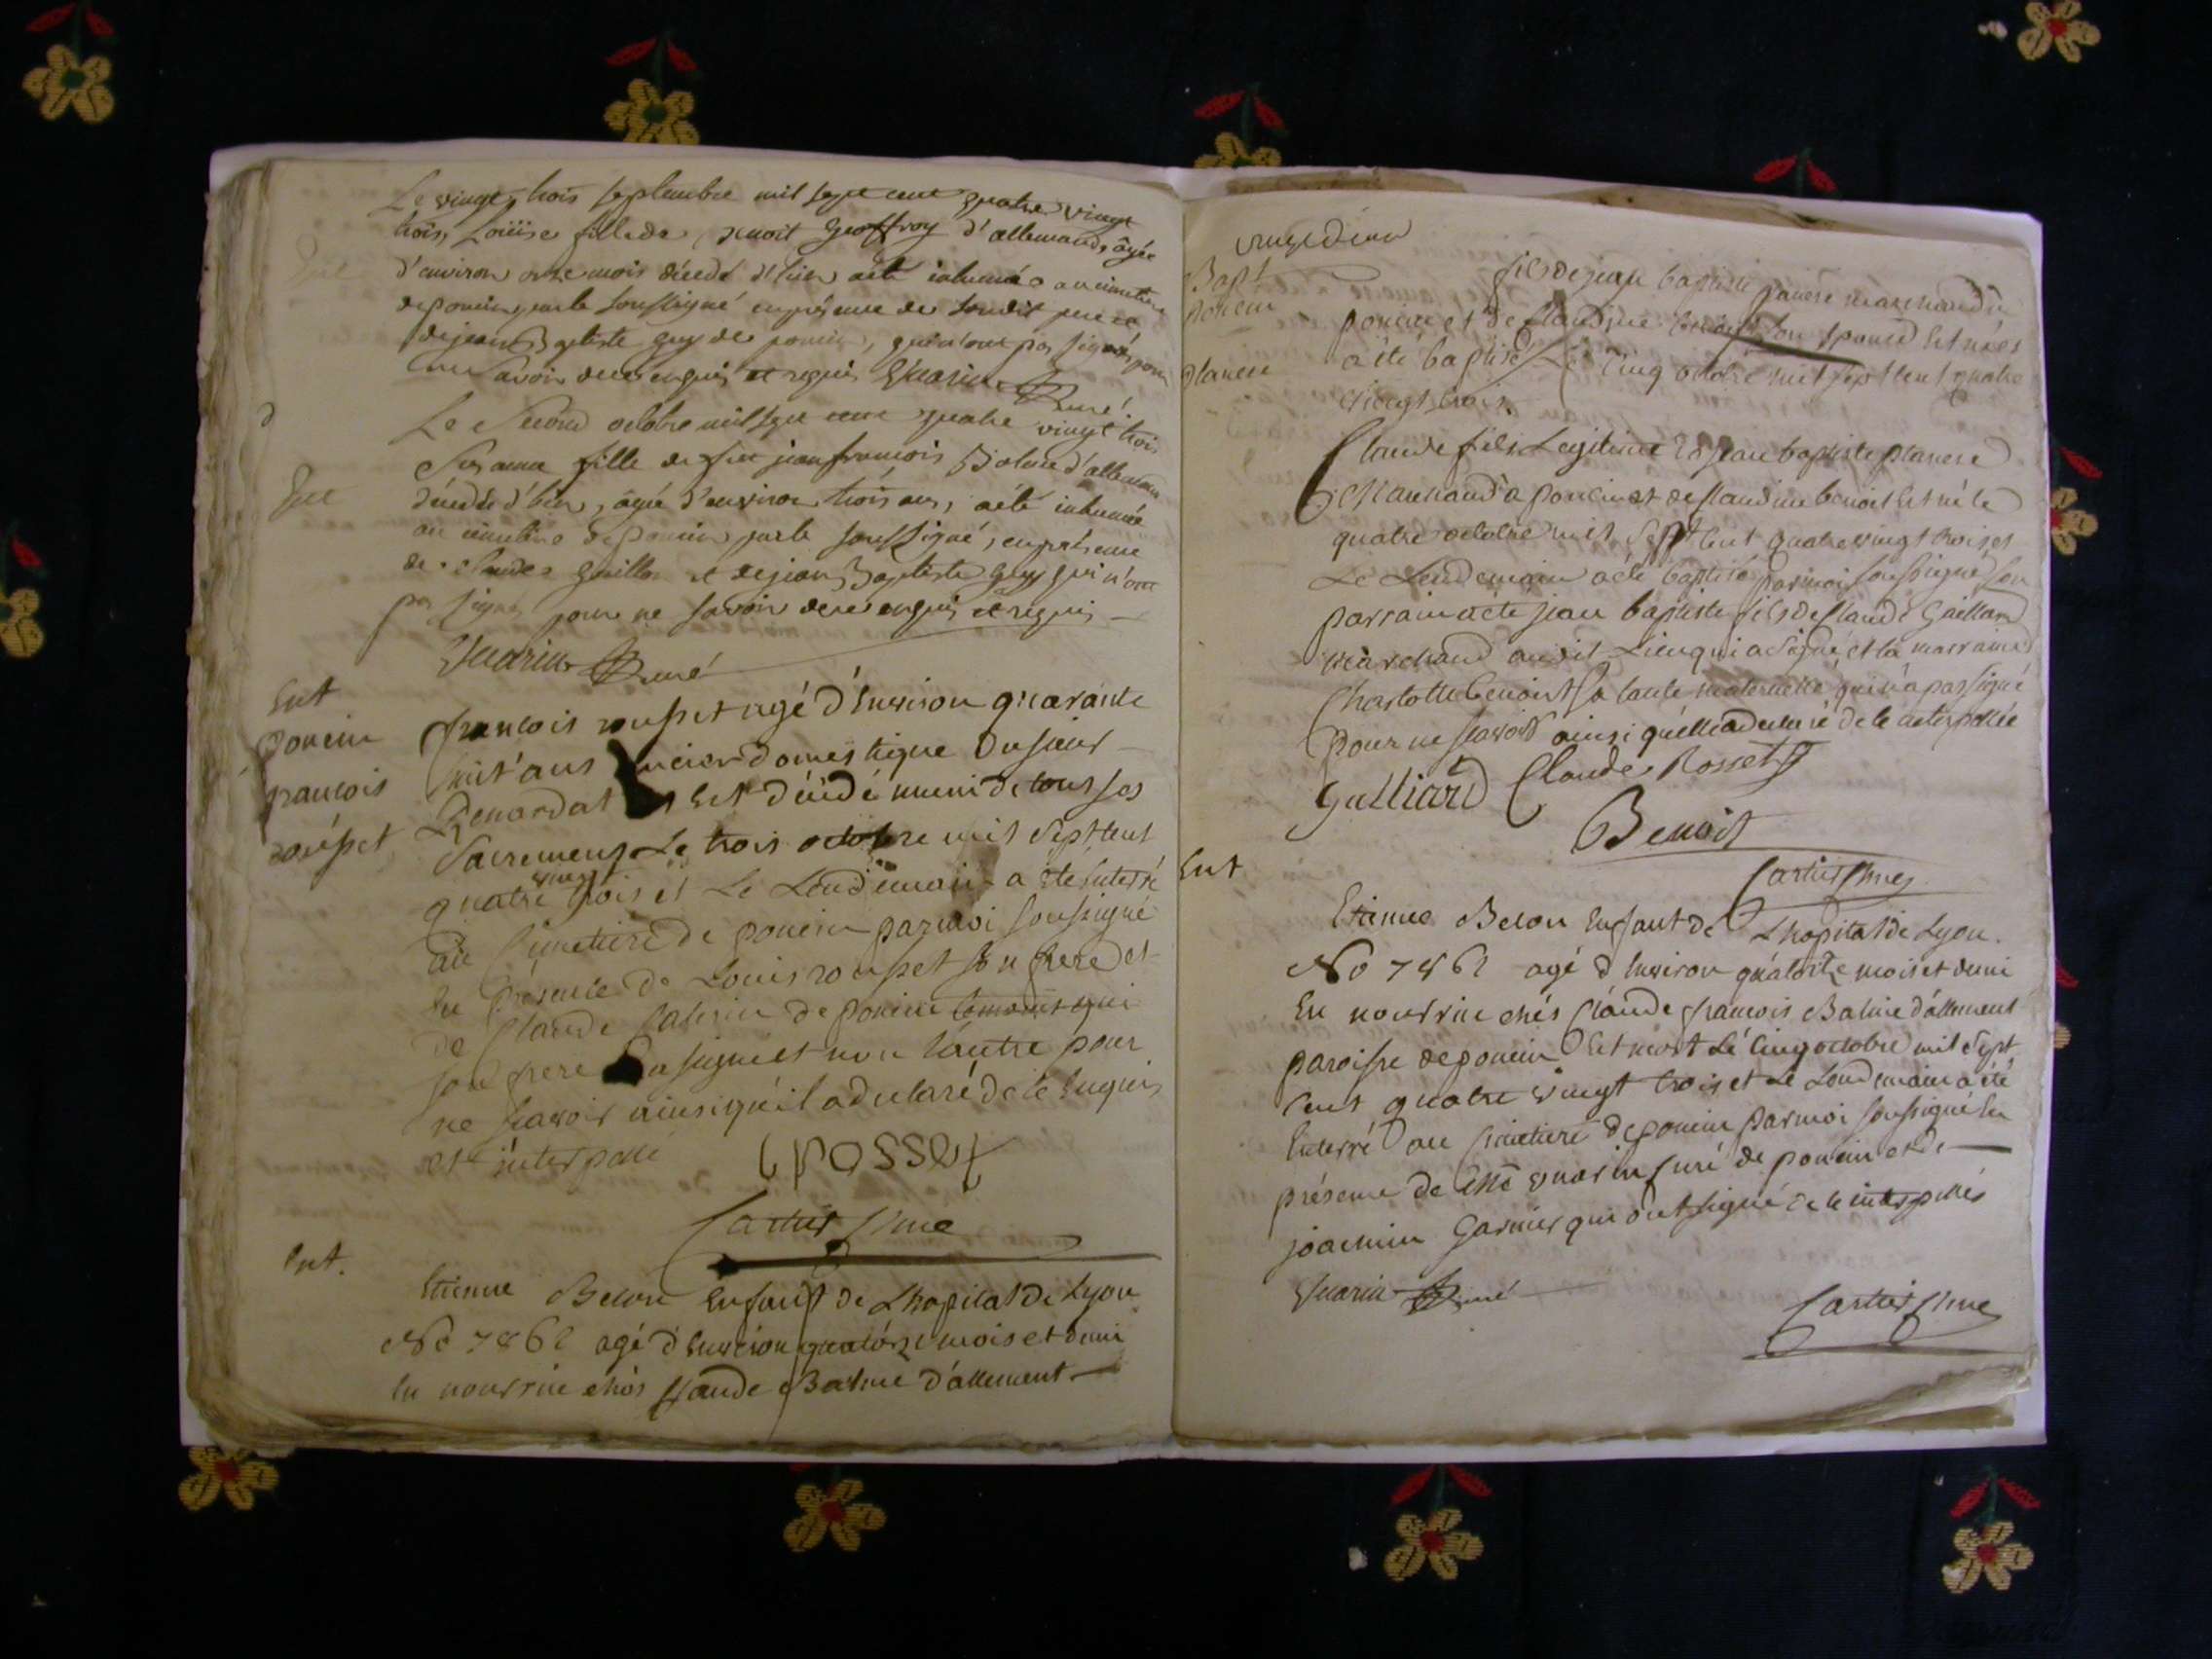 Le vingt trois septembre mil sept cent quatre vingt
trois, Loüise fille de benoit Geoffroy d'allemand, âgée
d'environ onze mois décedé d'hier aété inhumée au cimetiere
de poncin, par le soussigné en présence de sondit pere et
de jean Baptiste guy de poncin, qui n'ont pas signés pour
ne savoir de ce enquis et requis Guarin Curé.
Le Second octobre mil sept cent quatre vingt trois
Susanne fille de feu jean francois Balme d'allemand
Ent
décedée d'hier, âgée d'environ trois ans, aété inhumée
au cimetiere de poncin par le soussigné, en présence
de Claude guillon et de jean Baptiste guy qui n'ont
pas signés pour ne savoir de ce enquis et requis
Guarin Curé
Ent
poncin
francois
rousset
francois rousset agé d'Environ quarante
huit ans ancien domestique du sieur
Renardat Est décédé muni de tous ses
Sacremens Le trois octobre mil Sept Cent
quatre vingt trois et Le Lendemain a été Enterré
au Cimetiere de poncin par moi soussigné
En présence de Louis rousset son frere et
de Claude Catherin de poncin temoins qui
son frere a signé et non l'autre pour
ne scavoir ainsi qu'il a déclaré de ce Enquis
et interpellé
L ROSSET
Cartier Curé
Ent.
Etienne Belon Enfant de L'hopital de Lyon
No 7862 agé d'Environ quatorze mois et demi
En nourrice chés Claude Balme d'allement
vingt deux
Bapt
poncin
planere
fils de jean baptiste planere marchand a
poncin et de Claudine benoit son Epouse Est né et
a été baptisé Le Cinq octobre mil Sept Cent quatre
vingt trois.
Claude fils Legitime de Jean baptiste planere
Marchand a poncin et de Claudine benoit Est né le
quatre octobre mil Sept Cent quatre vingt trois et
Le Lendemain a été baptisé par moi soussigné son
parrain a été jean baptiste fils de Claude Gaillard
marchand audit Lieu qui a Signé, et la marraine
Charlotte benoit sa tante maternelle qui n'a pas signé
pour ne scavoir ainsi qu'elle a declaré de ce interpellée
Galliard Claude Rosset
Benoit
Cartier Curé
Ent
Etienne Belon Enfant de L'hopital de Lyon.
No 7862 agé d'Environ quatorze mois et demi
En nourrice chés Claude francois Balme d'allement
paroisse de poncin Est mort Le Cinq octobre mil Sept
Cent quatre vingt trois et Le Lendemain a été
Enterré au Cimetiere de poncin par moi soussigné En
présence de guarin Curé de poncin et de
joachim Garnier qui ont signé de ce interpellés
Guarin Curé
Cartier Curé